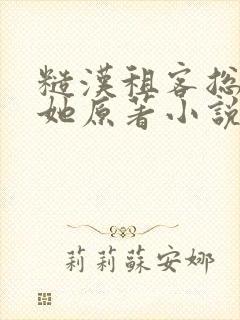 糙漢租客總
她原著小說
莉莉蘇安娜